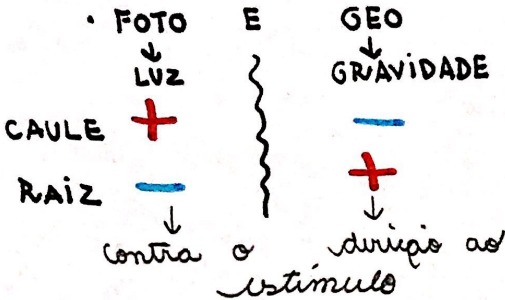 • FOTO E GEO
↓ ↓
LUZ GRAVIDADE
CAULE + −
RAIZ − +
↓ ↓
contra o direção ao
estímulo